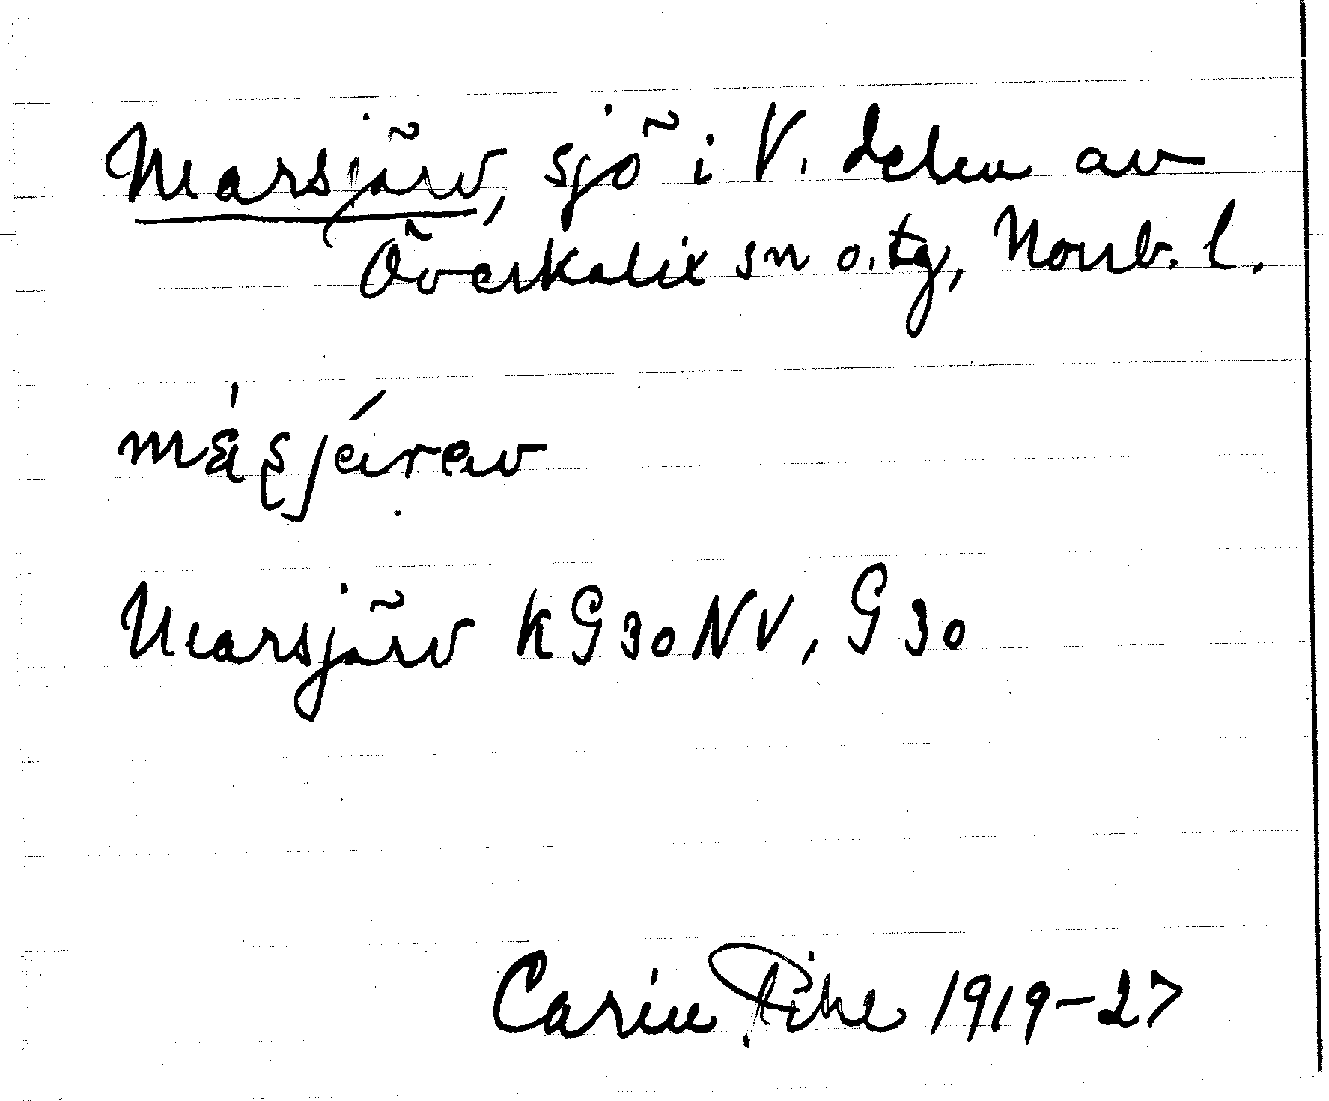 Marsjärv, sjö i V. delen av
Överkalix sn o. tg, Norrb. l.
Marsjärv kG30NV, G30
Carin Pihl 1919-27